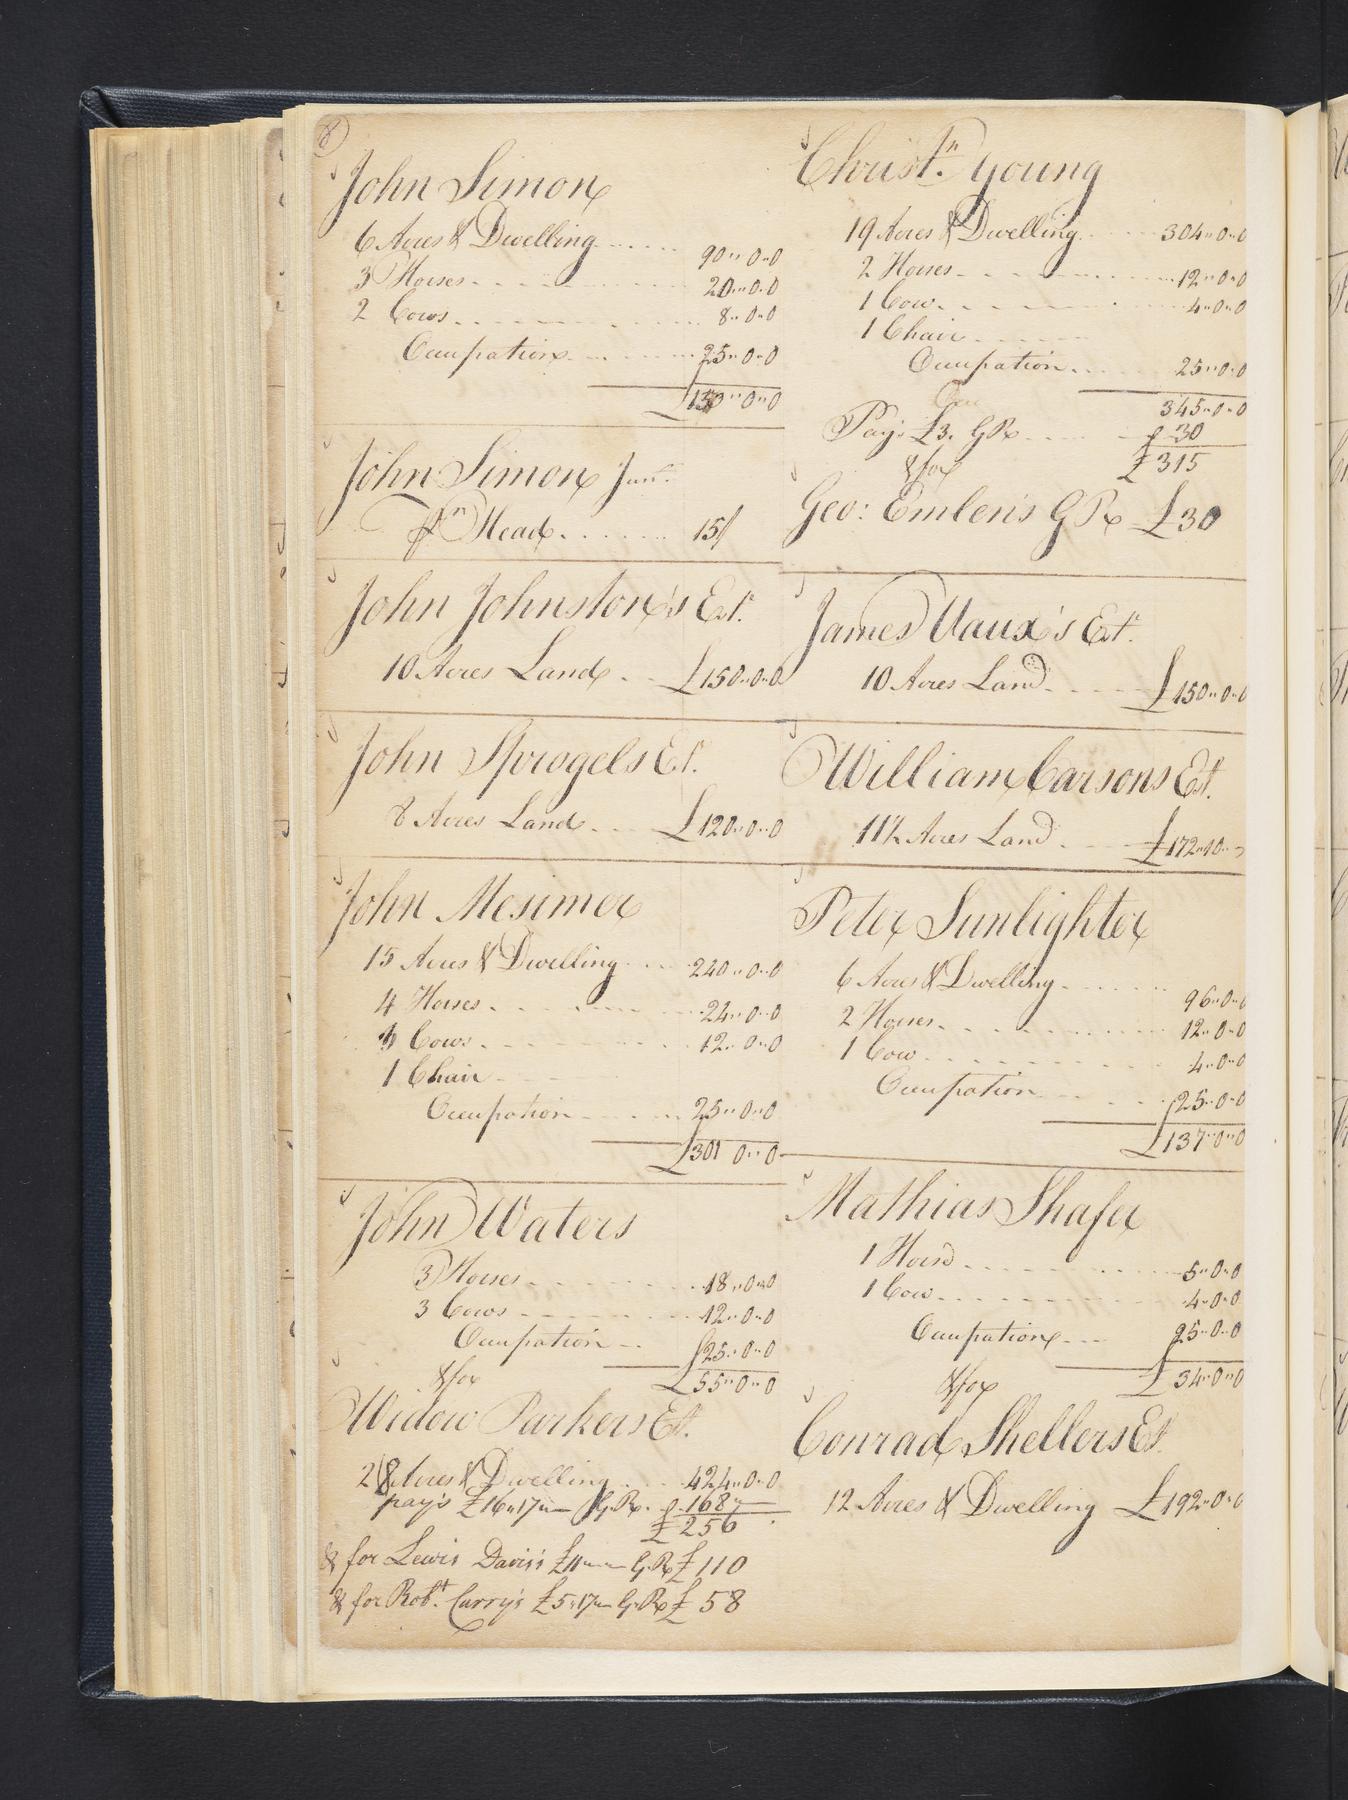 8
John Simon
6 Acres & Dwelling 90..0..0
3 Horses 20..0..0
2 Cows 8..0..0
Occupation 25..0..0
£ 0..0
John Simon Junr.
Pr. Head 15/
John Johnston's Est.
10 Acres Land £150..0..0
John Sprogels Et.
8 Acres Land £120..0..0
John Mesimer
15 Acres & Dwelling 240..0..0
4 Horses 24..0..0
Cows 12..0..0
1 Chair
Occupation 25..0..0
£301 0..0
John Waters
3 Horses 18..0..0
3 Cows 12..0..0
Occupation £25..0..0
& for £55..0..0
Widow Parkers Et.
28 Acres & Dwelling 424..0..0
pay's £16..17..— G.R. £168..—
£256
& for Lewis Davis's £11..—..— G.R £110
& for Robt. Curry's £5..17..— G.R £58
Christn. Young
19 Acres & Dwelling 304..0..0
2 Horses 12..0..0
1 Cow 4..0..0
1 Chair
Occupation 25..0..0
345..0..0
Pay's £3. GR £30
& for £315
Geo: Emlen's GR £30
James Vaux's Est.
10 Acres Land £150..0..0
William Carsons Est.
11½ Acres Land £172..10..–
Peter Sunlighter
6 Acres & Dwelling 96..0..0
2 Horses 12..0..0
1 Cow 4..0..0
Occupation 25..0..0
£137..0..0
Mathias Shafer
1 Horse 5..0..0
1 Cow 4..0..0
Occupation 25..0..0
& for £34..0..0
Conrad Shellers Et.
12 Acres & Dwelling £192..0..0